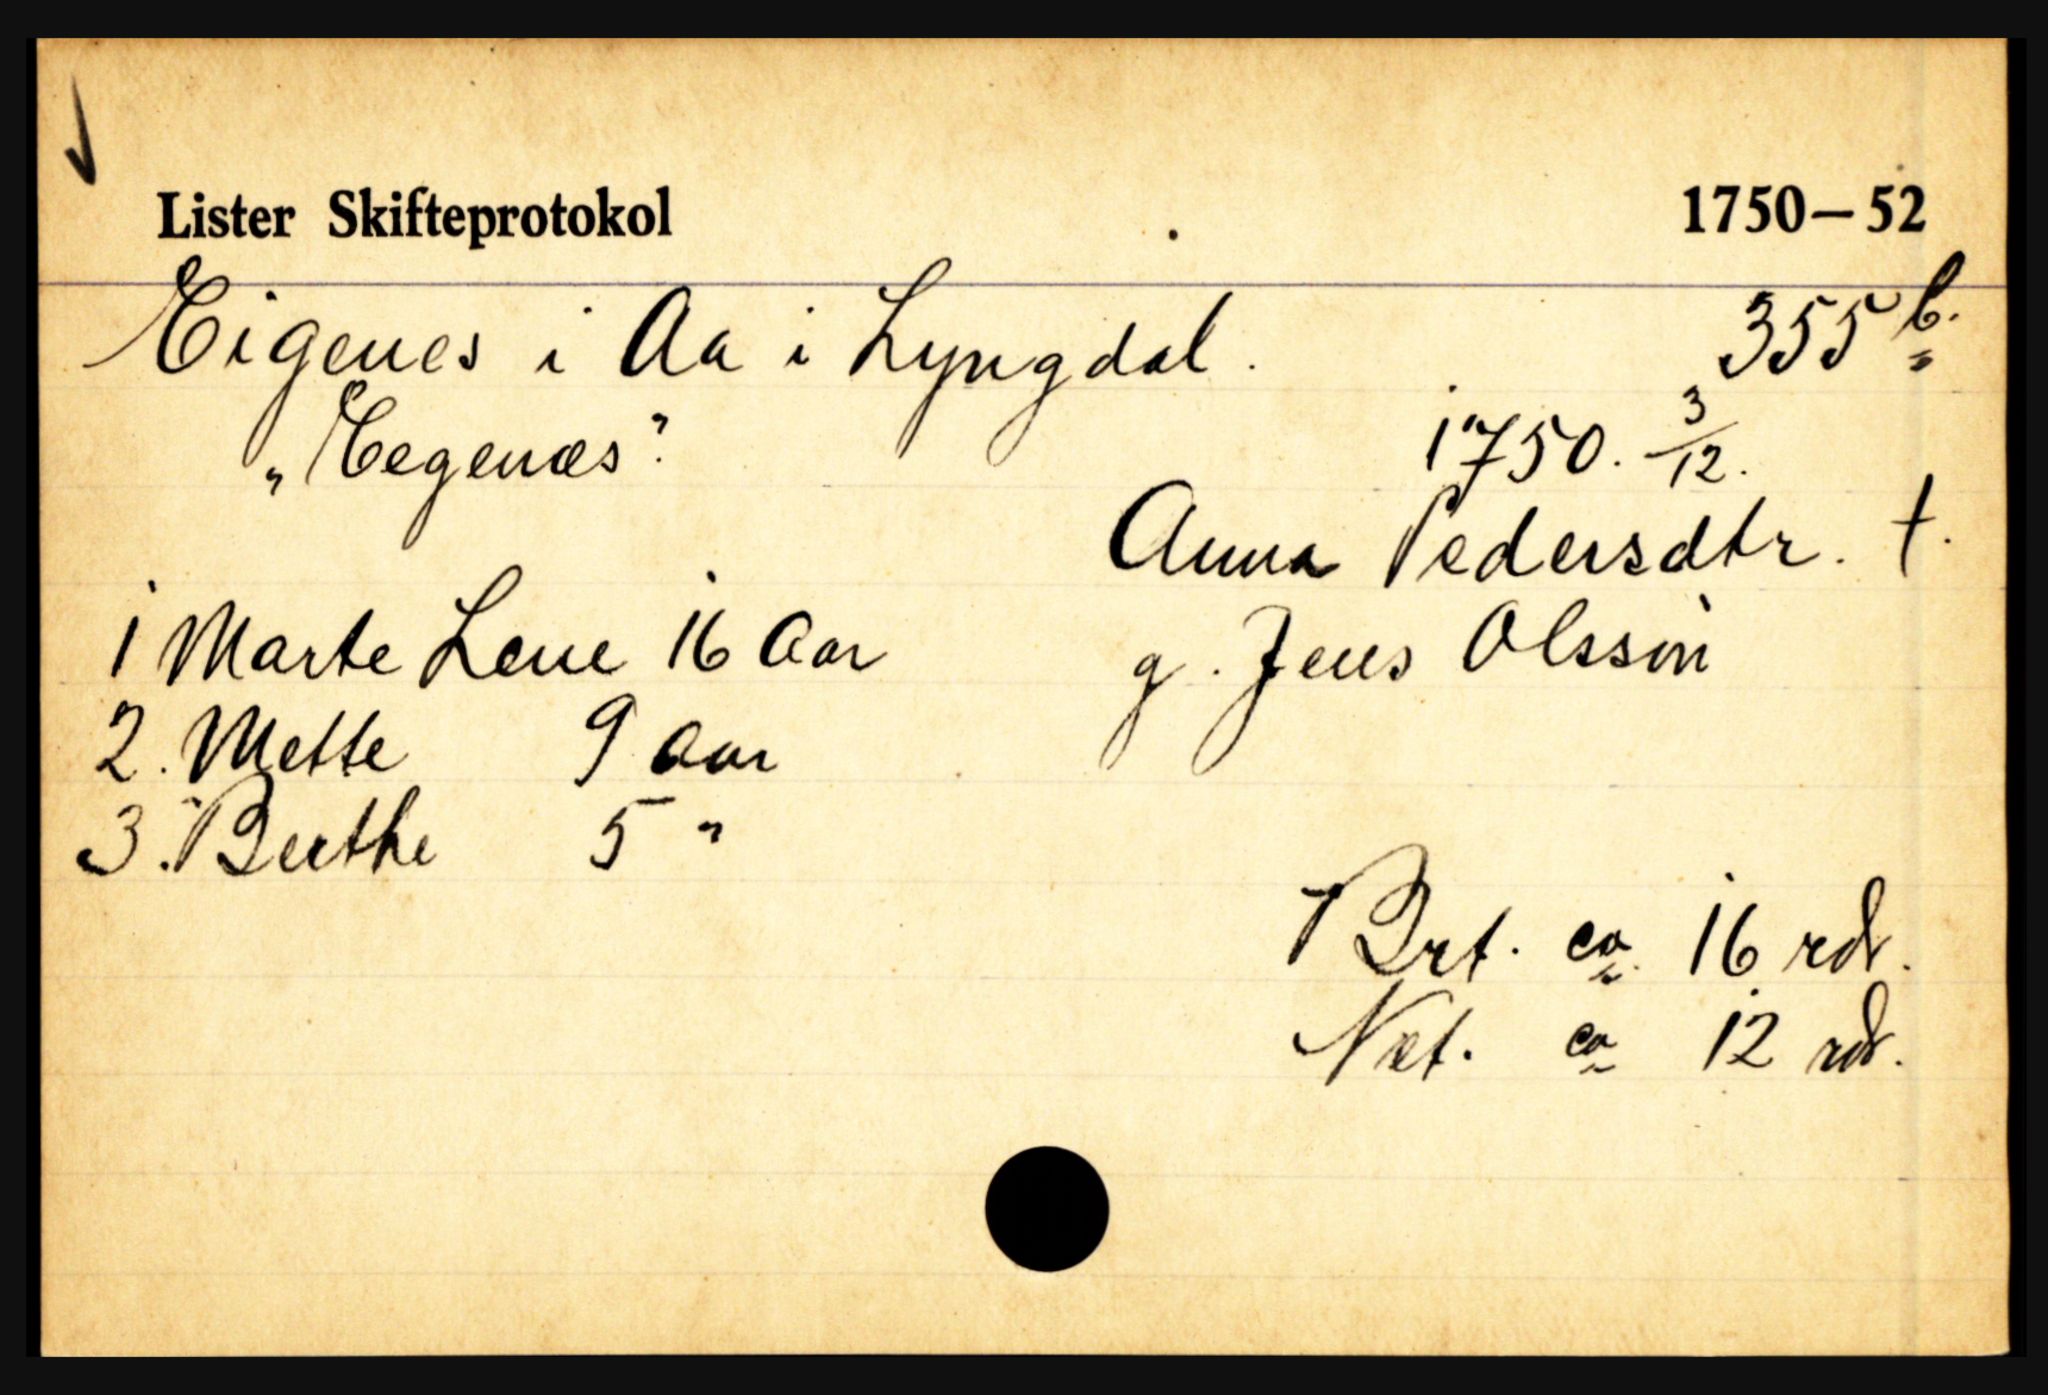 Lister Skifteprotokol 1750–52
Eigenes i Aa i Lyngdal. 355 b.
„Eegenæs". 1750. 3/12.
Anna Pedersdtr. †.
1 Marte Lene 16 Aar g. Jens Olsson
2. Mette 9 Aar
3. Berthe 5 "
Brt. ca 16 rdr.
Net. ca 12 rdr.